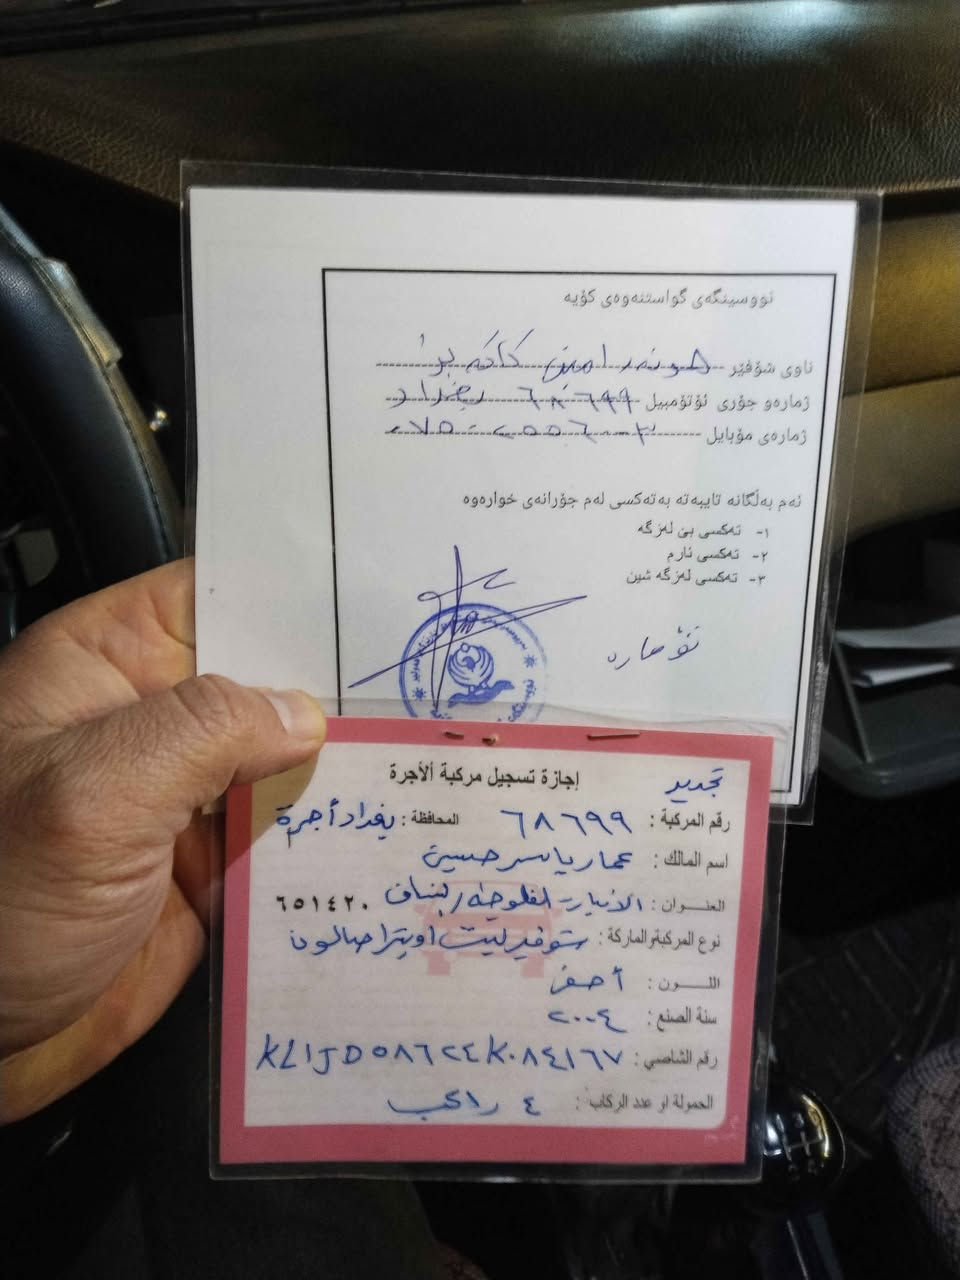 نووسینگەی گواستنەوەی کۆیە
ناوی شۆفێر هونەر امین کاکە
ژمارەو جۆری ئۆتۆمبیل ٦٨٦٩٩ بغداد
ژمارەی مۆبایل
ئەم بەڵگانە تایبەتە بەتەکسی لەم جۆرانەی خوارەوە
١- تەکسی بێ لەزگە
٢- تەکسی نارم
٣- تەکسی لەزگە شین
تجديد
إجازة تسجيل مركبة ألأجرة
رقم المركبة : ٦٨٦٩٩ المحافظة : بغداد أجرة
اسم المالك : عمار ياسر حسين
العنوان : الانبار - الفلوجة ٦٥١٤٢٠
نوع المركبة والماركة : شوفرليت اوبترا صالون
اللون : أصفر
سنة الصنع : ٢٠٠٤
رقم الشاصي : KL١JD٥٨٦٢٤K٠٨٤١٦٧
الحمولة او عدد الركاب : ٤ راكب